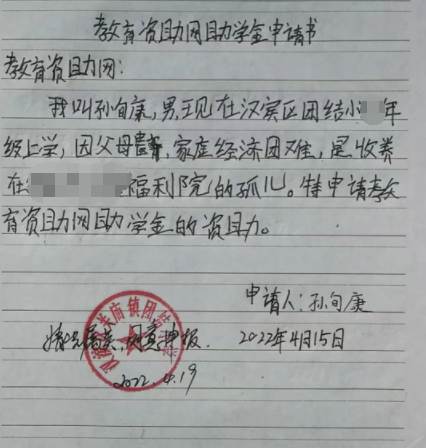 教育资助网助学金申请书
教育资助网:
我叫孙旬康,男,现在汉宾区团结小 年
级上学,因父母 ,家庭经济困难,是收养
在 福利院的孤儿。特申请教
育资助网助学金的资助。
申请人:孙旬康
2022年4月15日
情况属实,同意申报.
2022.4.19
关庙镇团结